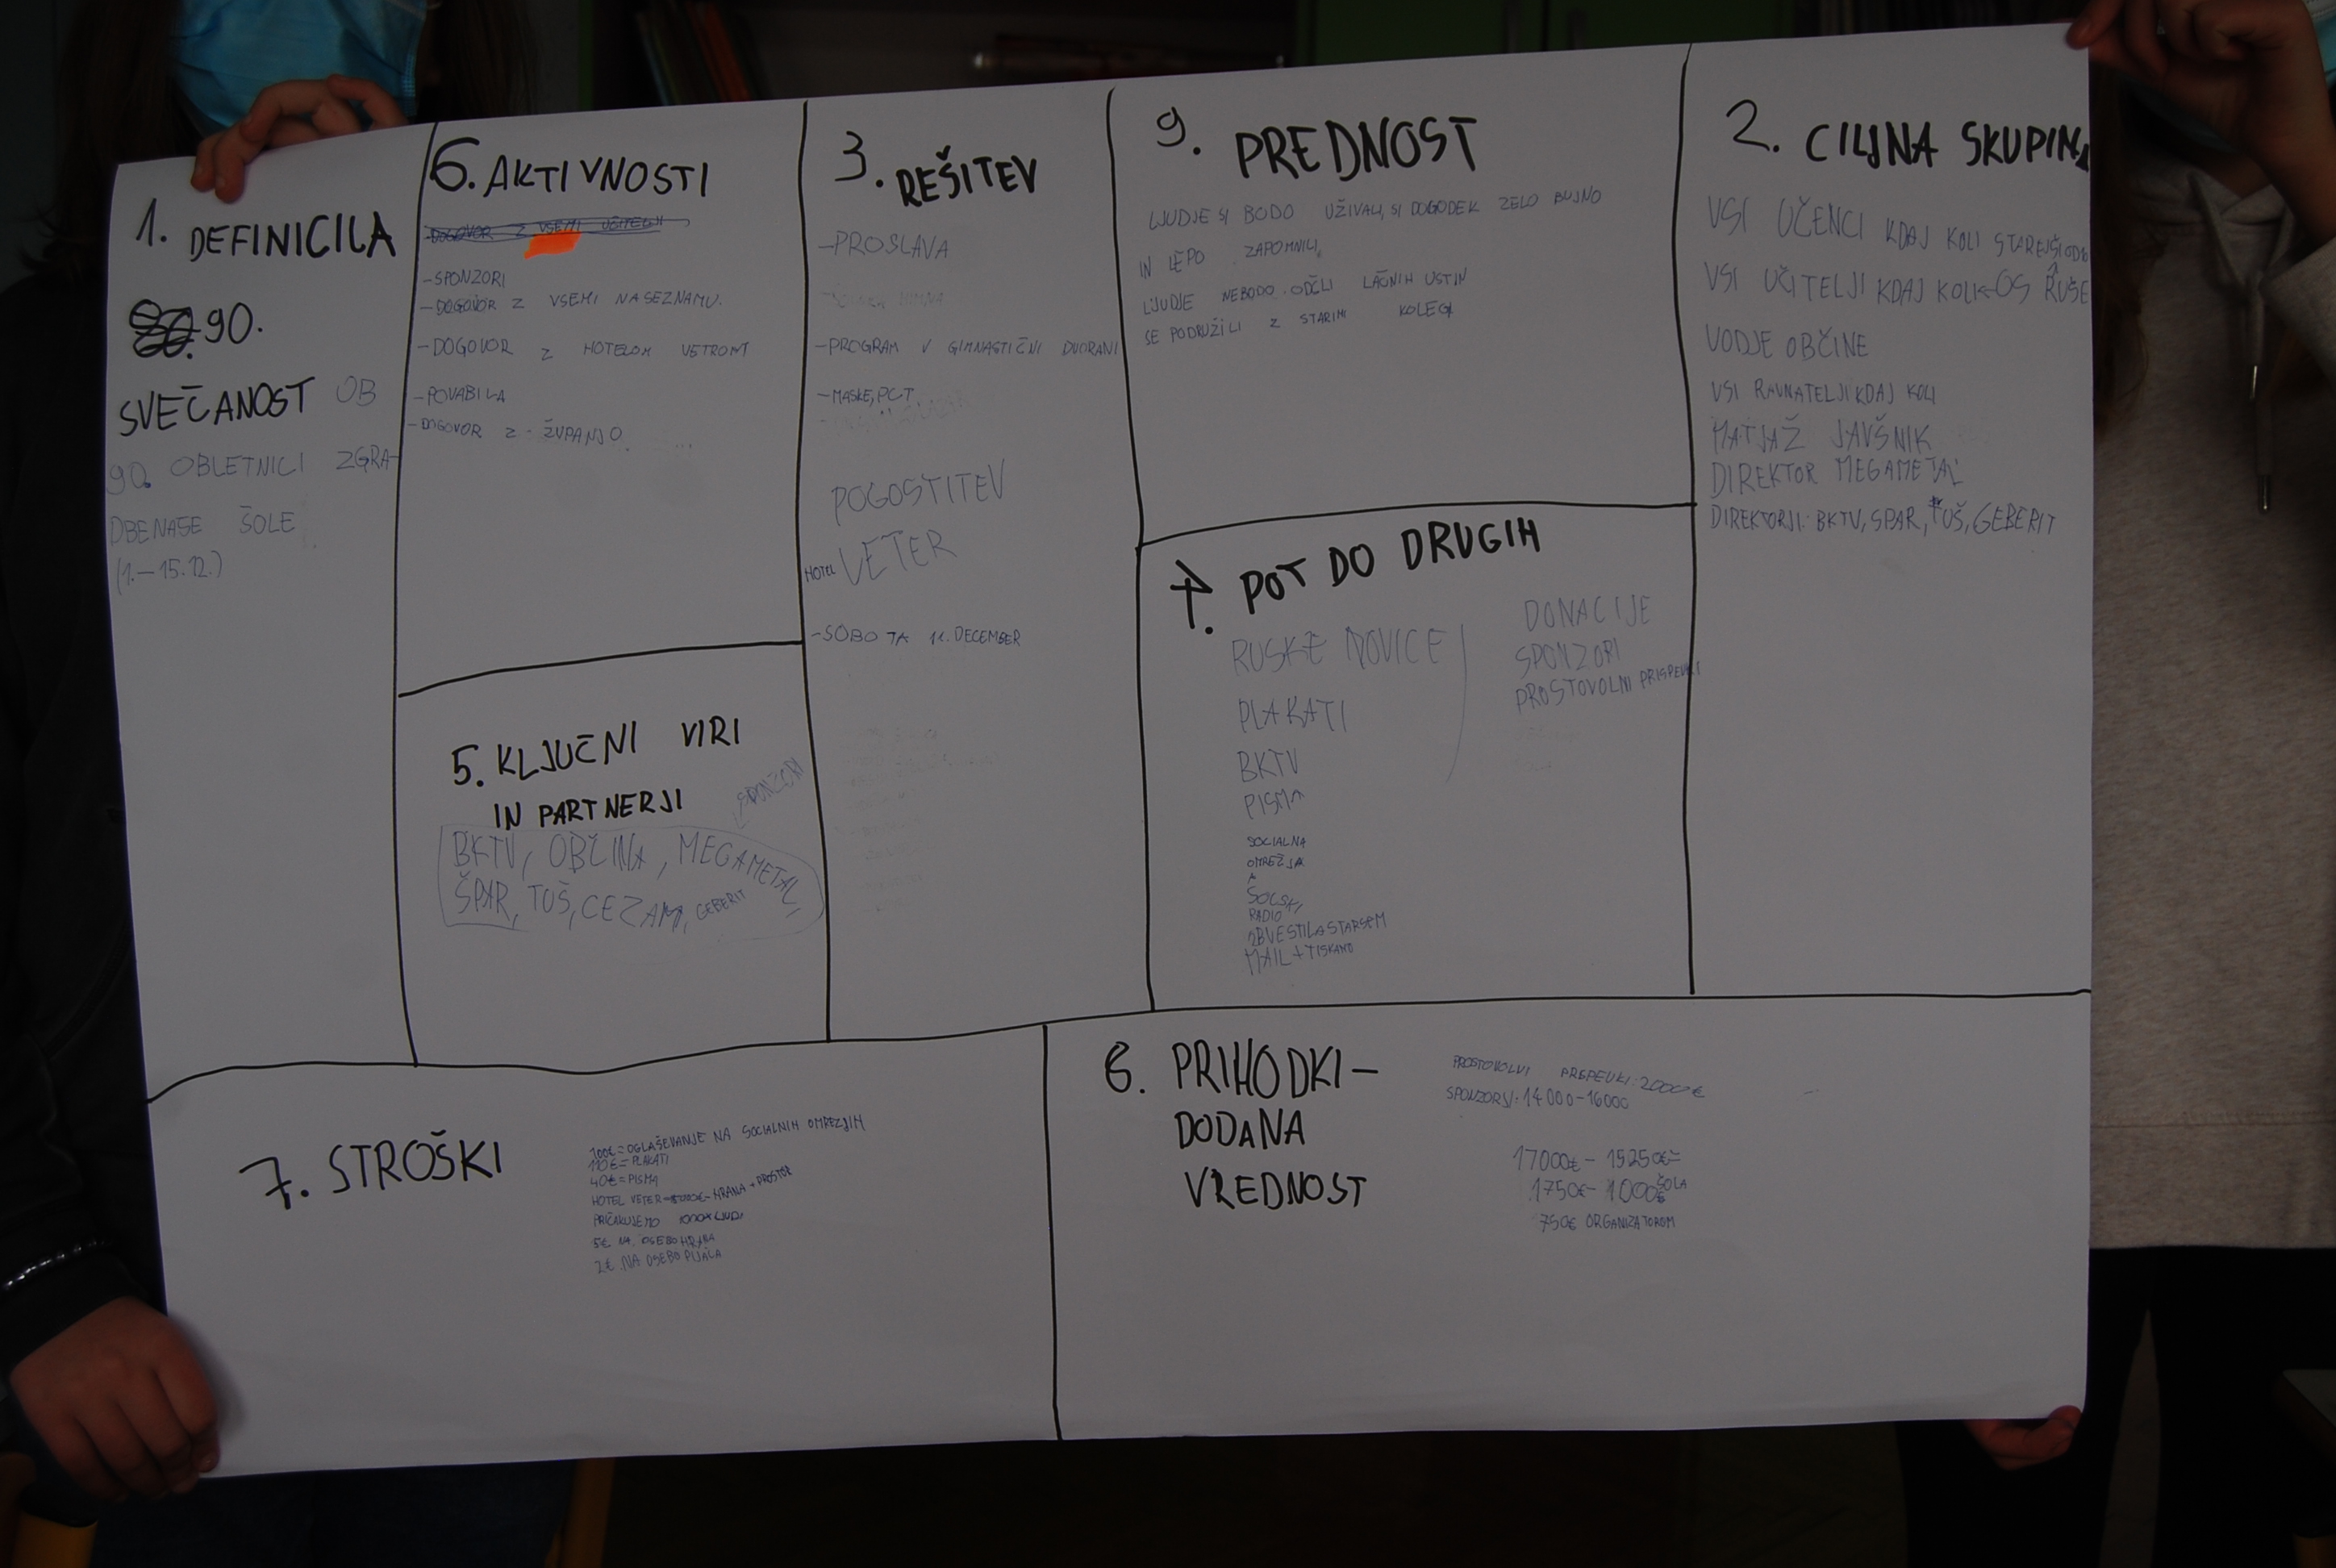 1. DEFINICIJA
90.
SVEČANOST OB
90. OBLETNICI ZGRA-
DBE NAŠE ŠOLE
(1.-15.12.)
6. AKTIVNOSTI
DOGOVOR Z VSEMI UČITELJI
-SPONZORI
-DOGOVOR Z VSEMI NA SEZNAMU.
-DOGOVOR Z HOTELOM
-POVABILA
-DOGOVOR Z ŽUPANJO
5. KLJUČNI VIRI
IN PARTNERJI
SPONZORJI
BKTV, OBČINA, MEGAMETAL
ŠPAR, TUŠ, CEZAM, GEBERIT
3. REŠITEV
-PROSLAVA
-PROGRAM V GIMNASTIČNI DVORANI
-MASKE, PCT
POGOSTITEV
HOTEL VETER
-SOBOTA 11. DECEMBER
9. PREDNOST
LJUDJE SI BODO UŽIVALI, SI DOGODEK ZELO BUJNO
IN LEPO ZAPOMNILI,
LJUDJE NEBODO ODŠLI LAČNIH USTIN
SE PODRUŽILI Z STARIMI KOLEGI
4. POT DO DRUGIH
RUŠKE NOVICE
PLAKATI
BKTV
PISMA
SOCIALNA
OMREŽJA
ŠOLSKI
RADIO
OBVESTILA STARŠEM
MAIL + TISKANO
DONACIJE
SPONZORI
PROSTOVOLNI PRISPEVKI
2. CILJNA SKUPINA
VSI UČENCI KDAJ KOLI STAREJŠI OD
VSI UČITELJI KDAJ KOLI OŠ RUŠE
VODJE OBČINE
VSI RAVNATELJI KDAJ KOLI
MATJAŽ JAVŠNIK
DIREKTOR MEGAMETAL
DIREKTORJI: BKTV, SPAR, TUŠ, GEBERIT
7. STROŠKI
100€ = OGLAŠEVANJE NA SOCIALNIH OMREŽJIH
110€ = PLAKATI
40€ = PISMA
HOTEL VETER - HRANA + PROSTOR
PRIČAKUJEMO 1000X LJUDI
5€ NA OSEBO HRANA
2€ NA OSEBO PIJAČA
8. PRIHODKI-
DODANA
VREDNOST
PROSTOVOLNI PRSPEVKI: 2000€
SPONZORJI: 14000-16000
17000€ - 15250€=
1750€ - 1000€ ŠOLA
750€ ORGANIZATORJEM